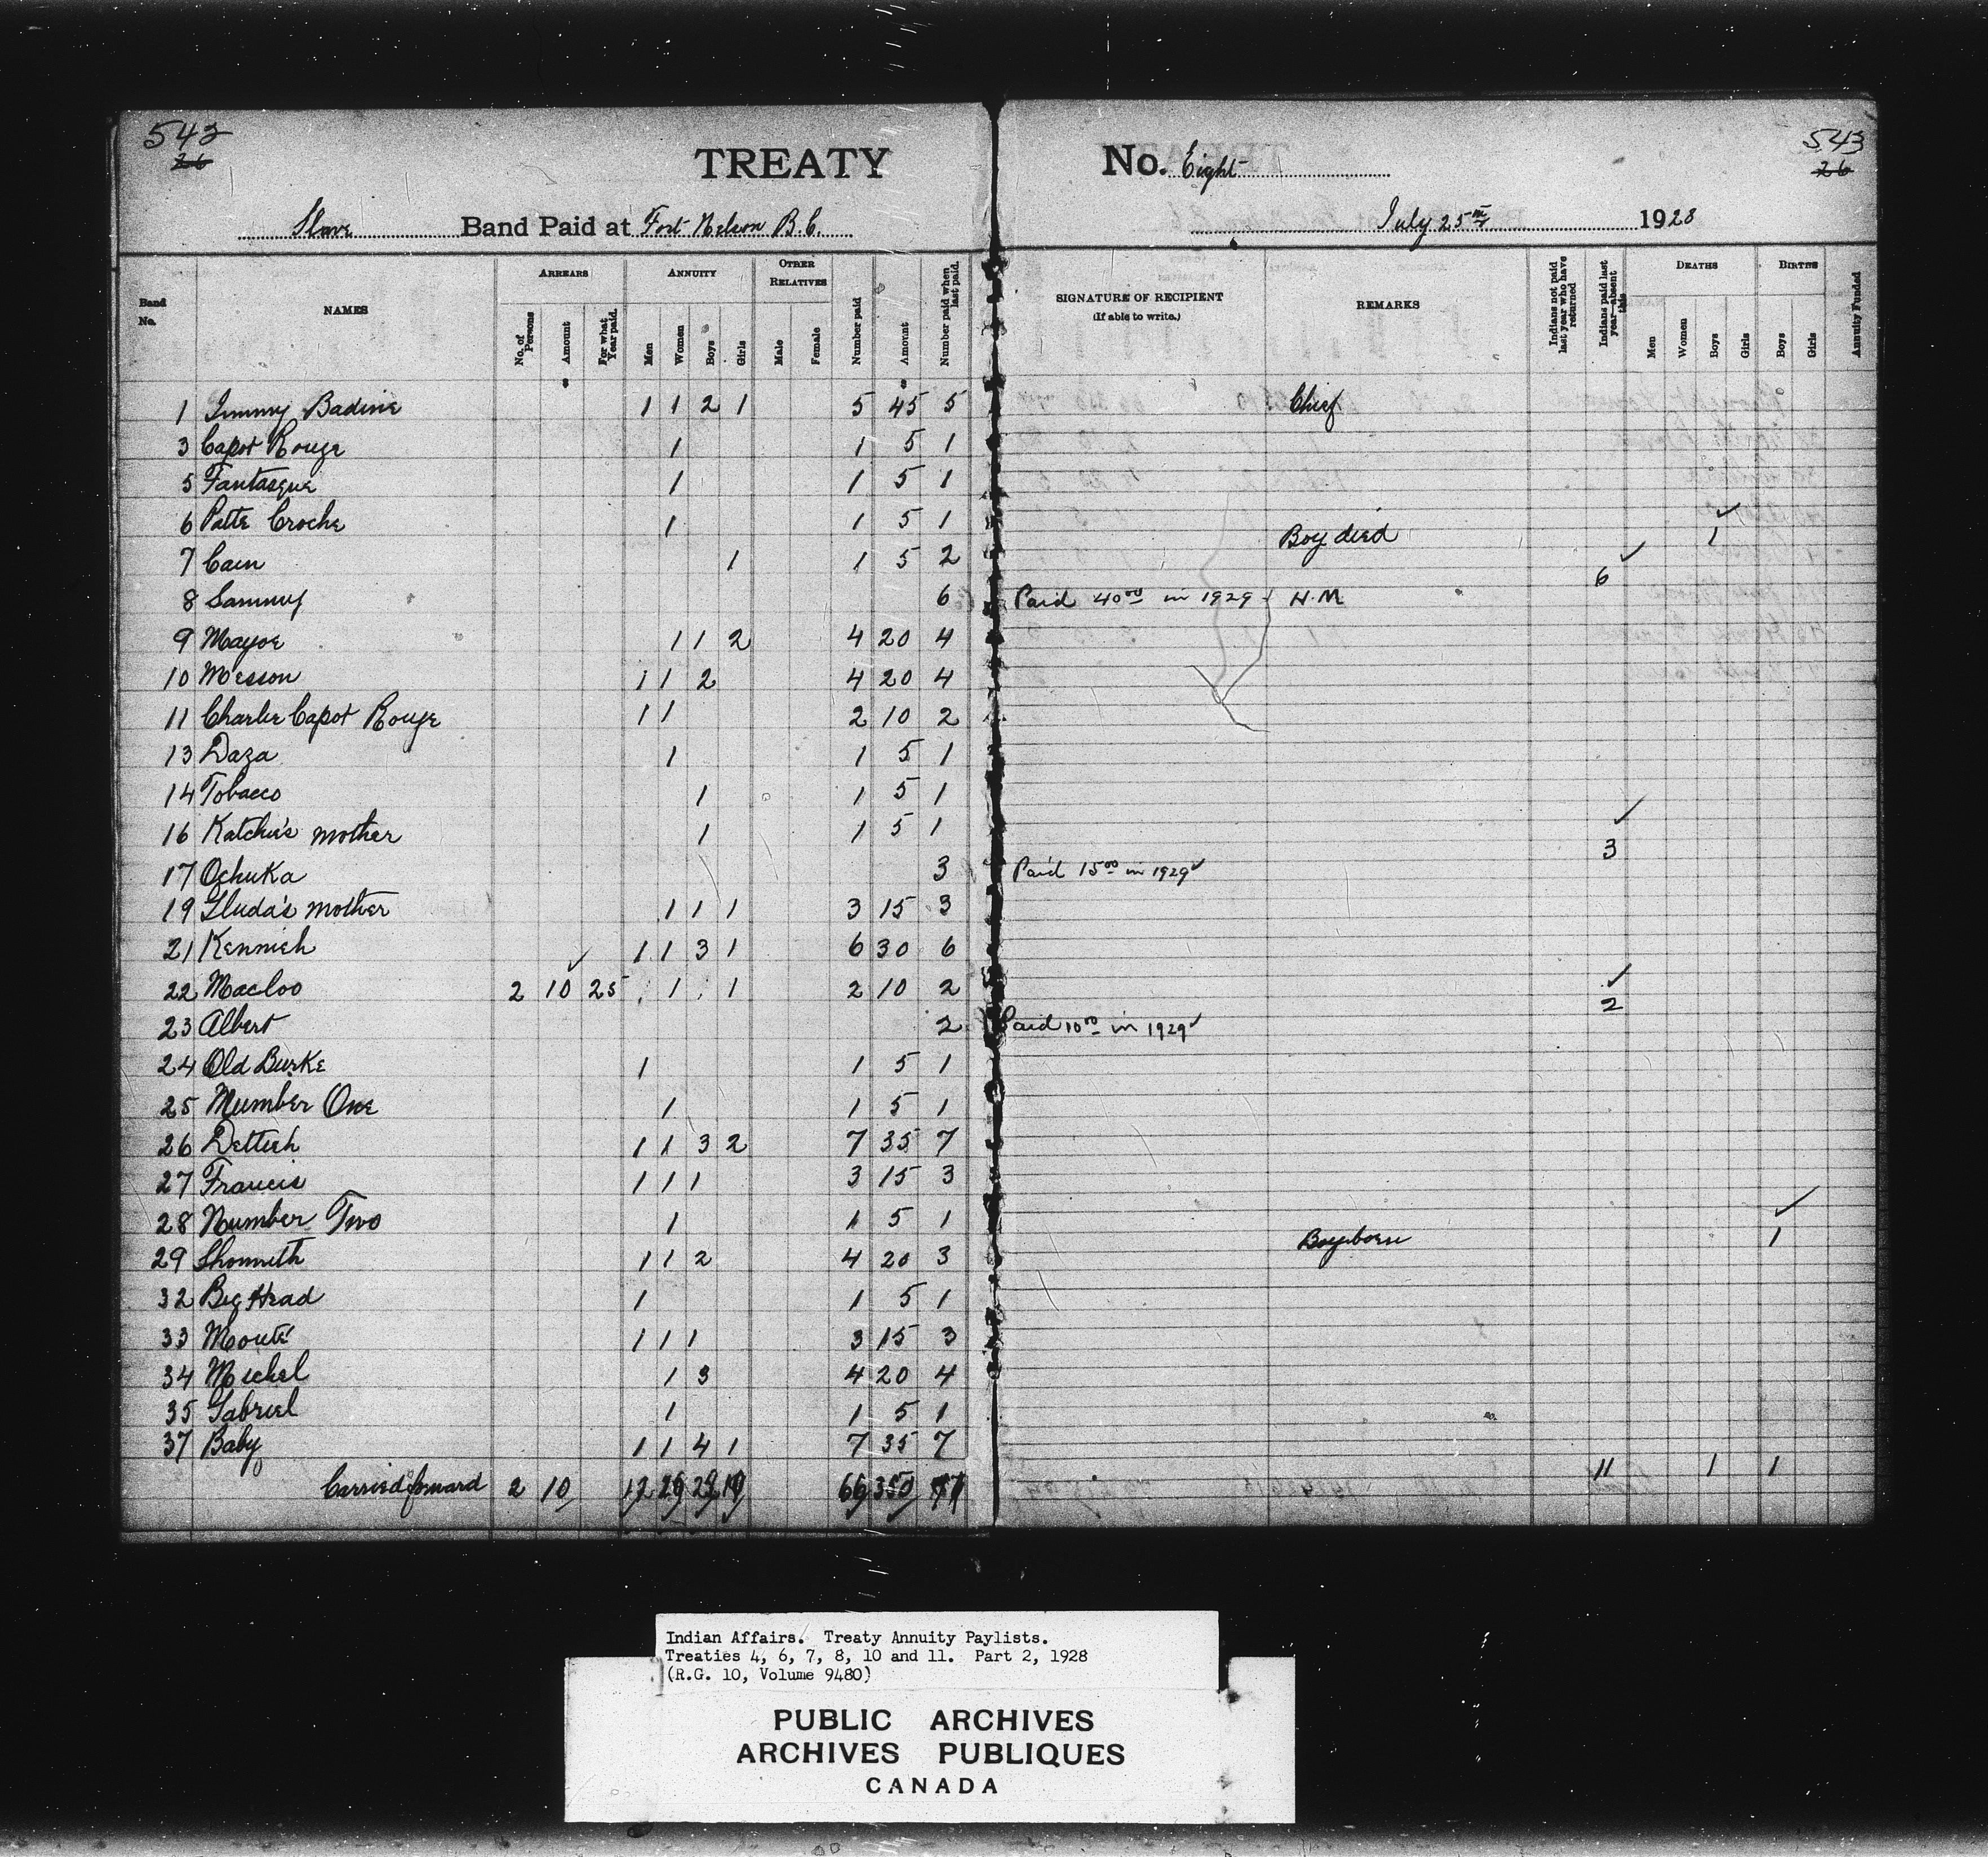 542
26
TREATY
Slave Band Paid at Fort Nelson B.C.
Band No.
NAMES
ARREARS
No. of Persons
Amount
For what Year paid.
ANNUITY
Men
Women
Boys
Girls
OTHER RELATIVES
Male
Female
Number paid
Amount
Number paid when last paid.
1 Jimmy Badine 1 1 2 1 5 45 5
3 Capot Rouge 1 1 5 1
5 Fantasque 1 1 5 1
6 Patte Croche 1 1 5 1
7 Cain 1 1 5 2
8 Sammy 6
9 Mayoe 1 1 2 4 20 4
10 Messon 1 1 2 4 20 4
11 Charlie Capot Rouge 1 1 2 10 2
13 Daza 1 1 5 1
14 Tobacco 1 1 5 1
16 Katchie's mother 1 1 5 1
17 Ochuka 3
19 Gluda's mother 1 1 1 3 15 3
21 Kennieh 1 1 3 1 6 30 6
22 Macloo 2 10 25 1 1 2 10 2
23 Albert 2
24 Old Burke 1 1 5 1
25 Number One 1 1 5 1
26 Dettieh 1 1 3 2 7 35 7
27 Francis 1 1 1 3 15 3
28 Number Two 1 1 5 1
29 Shonneth 1 1 2 4 20 3
32 Big Head 1 1 5 1
33 Mouté 1 1 1 3 15 3
34 Michel 1 3 4 20 4
35 Gabriel 1 1 5 1
37 Baby 1 1 4 1 7 35 7
Carried forward 2 10 12 66 350
543
26
No. Eight
July 25th 1928
SIGNATURE OF RECIPIENT
(If able to write.)
REMARKS
Indians not paid last year who have returned
Indians paid last year—absent this
DEATHS
Men
Women
Boys
Girls
BIRTHS
Boys
Girls
Annuity Funded
Chief
Boy died 1
6
Paid 40.00 in 1929 H.M
3
Paid 15.00 in 1929
2
Paid 10.00 in 1929
Boy born 1
11 1 1
Indian Affairs. Treaty Annuity Paylists.
Treaties 4, 6, 7, 8, 10 and 11. Part 2, 1928
(R.G. 10, Volume 9480)
PUBLIC ARCHIVES
ARCHIVES PUBLIQUES
CANADA